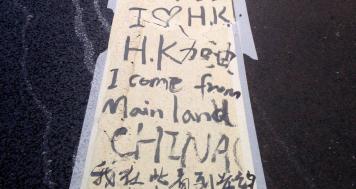 I ♡ H.K!
H.K加油
I come from
Mainland
CHINA!
我在此看到